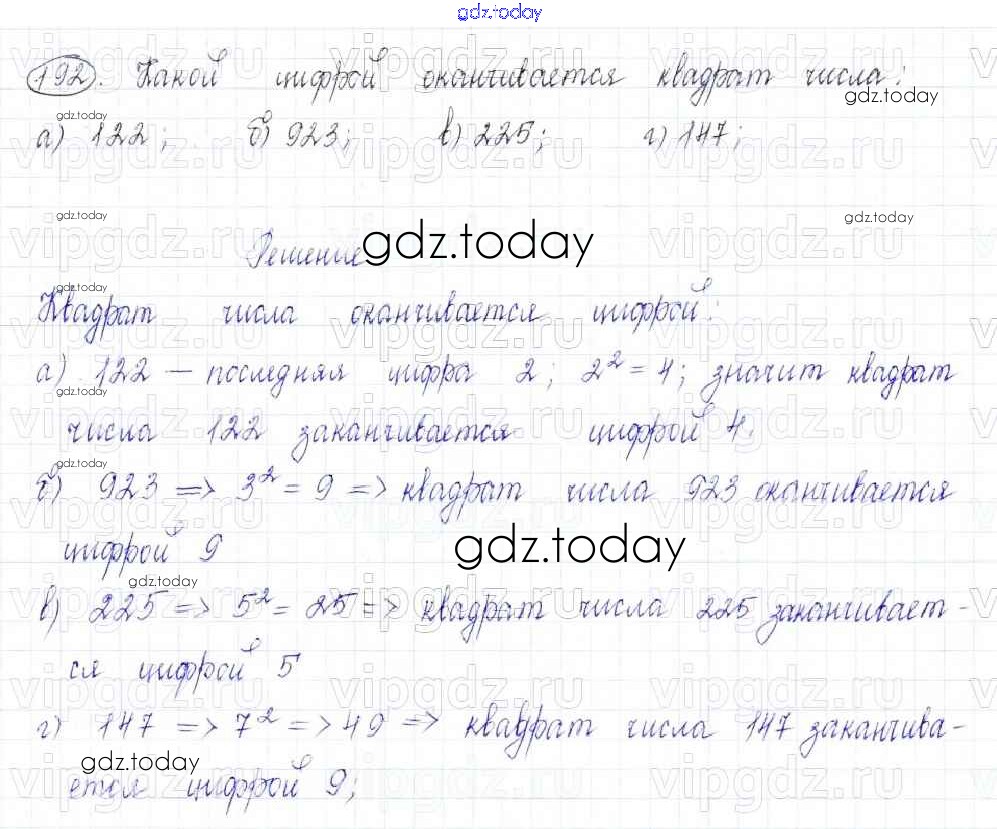 gdz.today
192. Какой цифрой оканчивается квадрат числа:
gdz.today
а) 122; б) 923; в) 225; г) 147;
gdz.today
vipgdz.ru vipgdz.ru vipgdz.ru
gdz.today gdz.today
Решение gdz.today
gdz.today
Квадрат числа оканчивается цифрой:
а) 122 — последняя цифра 2; 2² = 4; значит квадрат
числа 122 заканчивается цифрой 4.
gdz.today
б) 923 => 3² = 9 => квадрат числа 923 оканчивается
цифрой 9 gdz.today
gdz.today
в) 225 => 5² = 25 => квадрат числа 225 заканчивает-
ся цифрой 5
г) 147 => 7² => 49 => квадрат числа 147 заканчива-
gdz.today
ется цифрой 9;